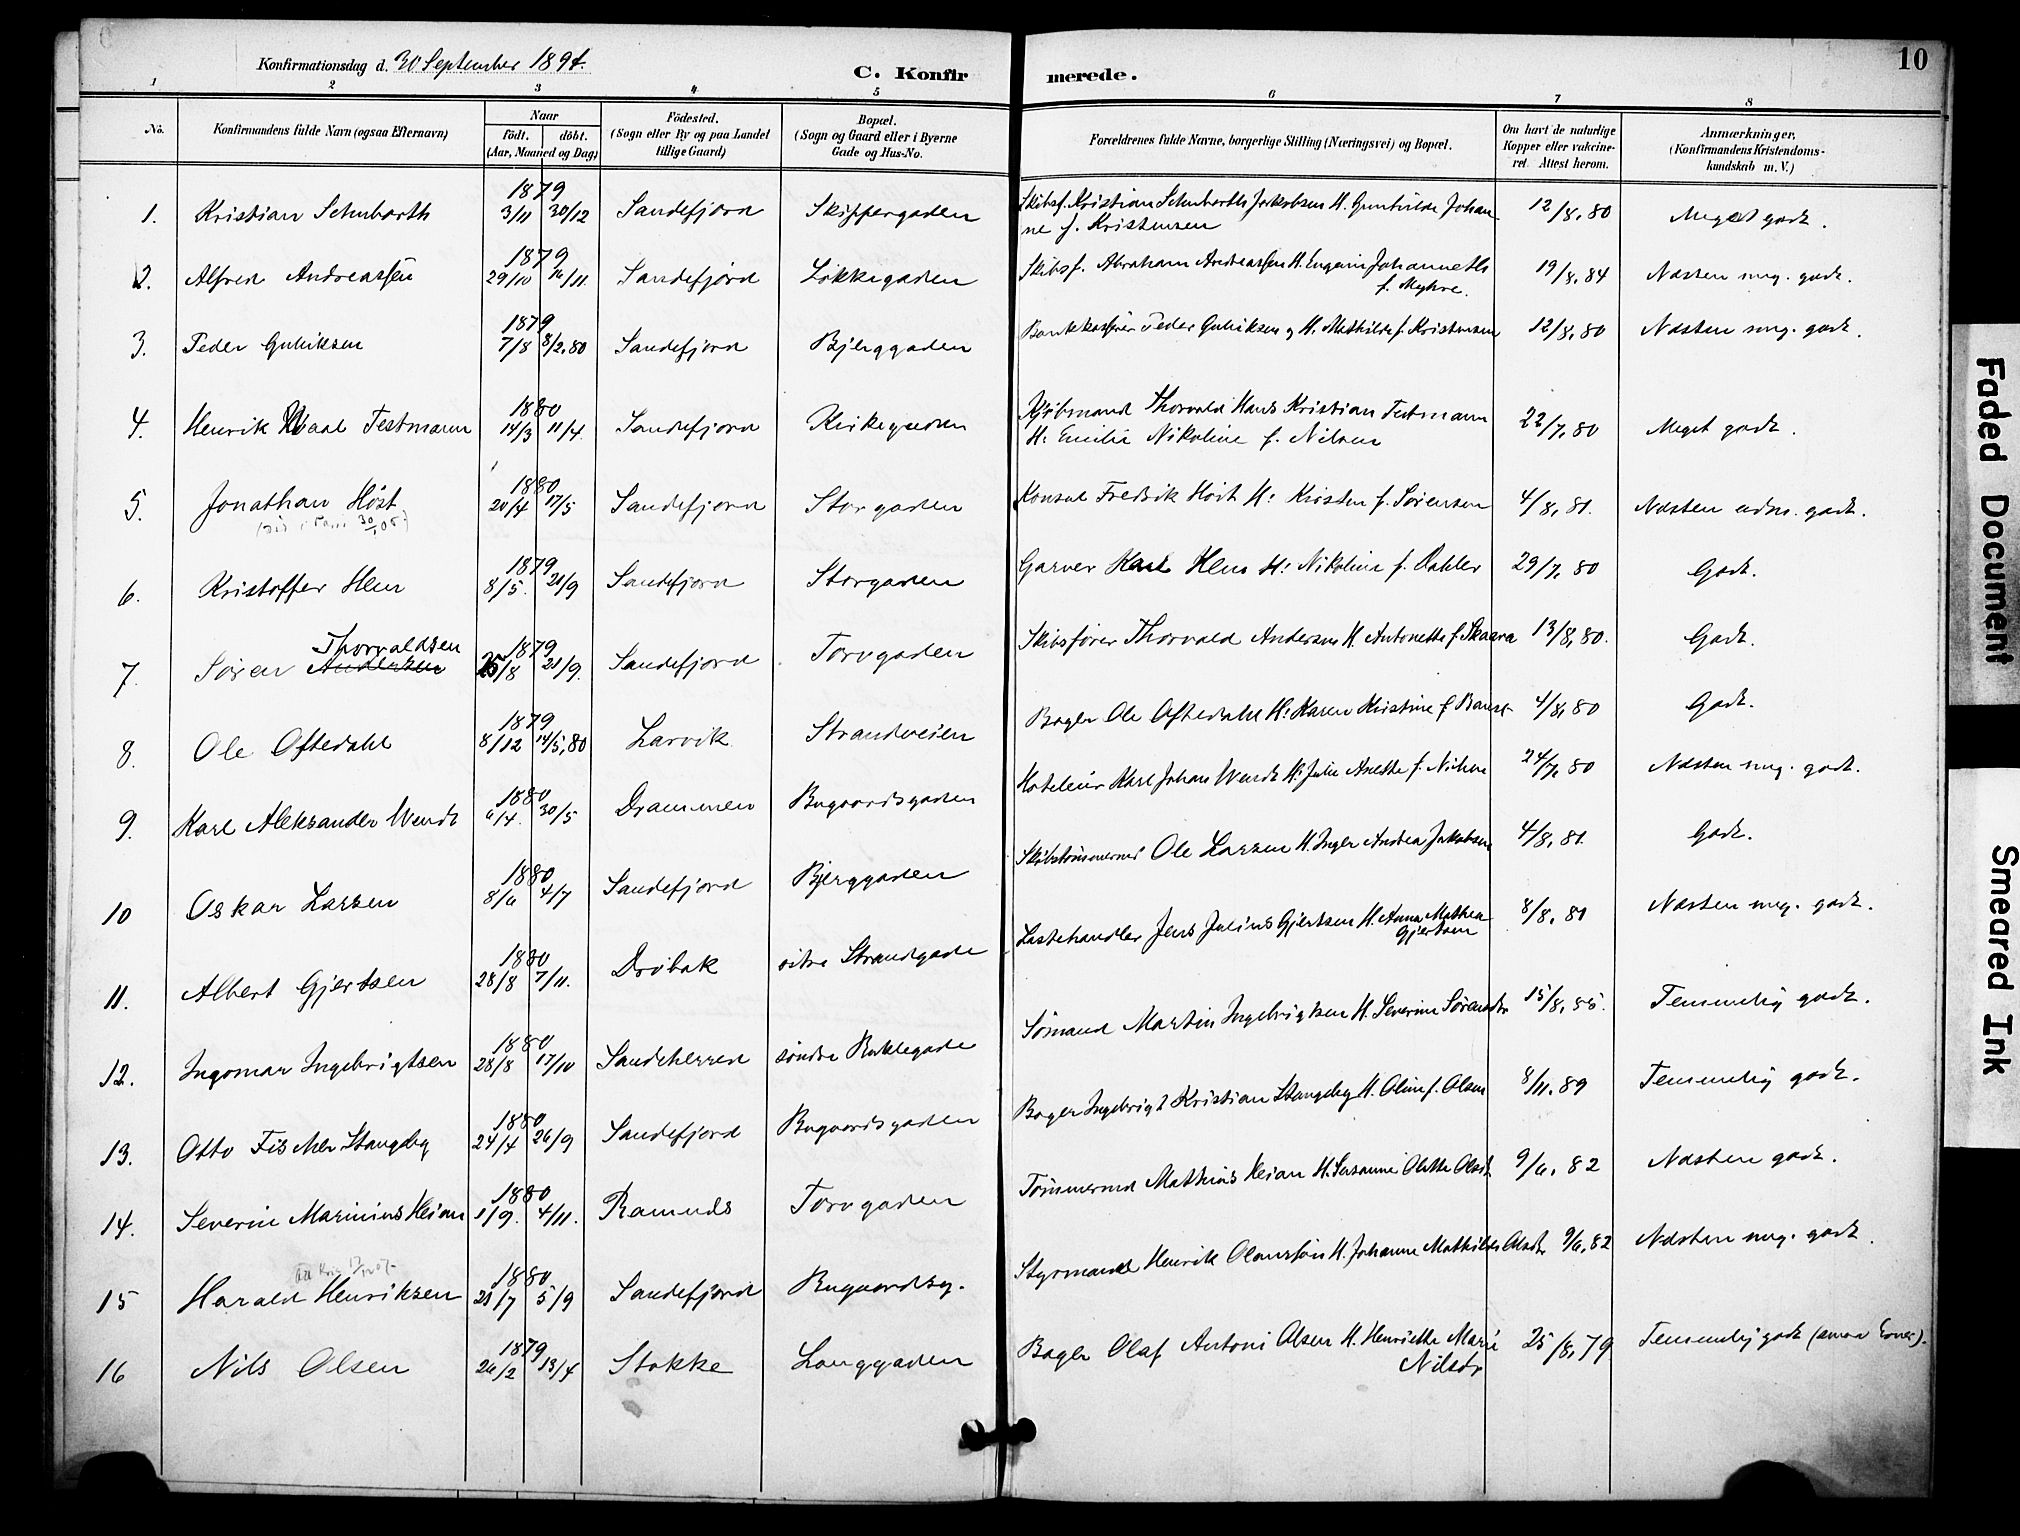 10
Konfirmationsdag d. 30 September 1894.
C. Konfirmerede.
1 2 3 4 5 6 7 8
No.
Konfirmandens fulde Navn (ogsaa Efternavn)
Naar
født. døbt.
(Aar, Maaned og Dag)
Fødested.
(Sogn eller By og paa Landet
tillige Gaard)
Bopæl.
(Sogn og Gaard eller i Byerne
Gade og Hus-No.
Forældrenes fulde Navne, borgerlige Stilling (Næringsvei) og Bopæl.
Om havt de naturlige
Kopper eller vakcine-
ret. Attest herom.
Anmærkninger,
(Konfirmandens Kristendoms-
kundskab m. V.)
1. Kristian Schubarth 1879 3/11 30/12 Sandefjord Skippergaden Skibsf. Kristian Schubarth Jakobsen H. Gunhilde Johan-
ne f. Kristensen 12/8, 80 Meget godt.
2. Alfred Andreassen 1879 29/10 16/11 Sandefjord Løkkegaden Skibsf. Abraham Andreassen H. Eugenie Johannette
f. Myhre. 19/8, 84 Næsten meg. godt.
3. Peder Guliksen 1879 7/8 8/2, 80 Sandefjord Bjerggaden Bankkasserer Peder Guliksen og H. Mathilde f. Kristensen 12/8, 80 Næsten meg. godt.
4. Henrik Waal Testmann 1880 14/3 11/4 Sandefjord Kirkegaden Kjøbmand Thorvald Hans Kristian Testmann
H: Emilie Nikoline f. Nilsen 22/7, 80 Meget godt.
5. Jonathan Høst 1880 20/4 17/5 Sandefjord Storgaden Konsul Fredrik Høst H: Kirsten f. Sørensen 4/8, 81. Næsten udm. godt.
6. Kristoffer Hem 1879 8/5. 21/9 Sandefjord Storgaden Garver Karl Hem H: Nikoline f. Dahler 29/7, 80 Godt.
Thorvaldsen
7. Søren Andersen 1879 25/8 21/9. Sandefjord Torvgaden Skibsfører Thorvald Andersen H. Antonette f. Skaara 13/8, 80. Godt.
8. Ole Oftedahl 1879 8/12 14/5, 80 Larvik Strandveien Bager Ole Oftedahl H: Karen Kristine f. 4/8, 80 Godt.
9. Karl Aleksander Wendt 1880 6/4. 30/5 Drammen Bugaardsgaden Hoteleier Karl Johan Wendt H: Julie Anette f. Nilsen 24/7, 80 Næsten meg. godt.
10 Oskar Larsen 1880 8/6 4/7 Sandefjord Bjerggaden Skibstømmermd Ole Larsen H. Inger Andrea Jakobsen 4/8, 81. Godt.
11. Albert Gjertsen 1880 28/8 7/11. Drøbak østre Strandgade Lastehandler Jens Julius Gjertsen H. Anna Mathea
Gjertsen 8/8, 81 Næsten meg. godt.
12. Ingomar Ingebrigtsen 1880 28/8 17/10 Sandeherred søndre Bakkegade Sømand Martin Ingebrigtsen H. Severine Sørensdtr 15/8, 85. Temmelig godt.
13. Otto Fischer Stangeby 1880 24/4 26/9 Sandefjord Bugaardsgaden Bager Ingebrigt Kristian Stangeby H. Oline f. Olsen 8/11. 89 Temmelig godt.
14. Severin Marinius Heian 1880 1/9. 4/11. Ramnæs Torvgaden Tømmermd Mathias Heian H. Susanne Olette Olsdt. 9/6, 82 Næsten godt.
15 Harald Henriksen 1880 21/7 5/9 Sandefjord Bugaardsg. Styrmand Henrik Olaussen H. Johanne Mathilde Olsdtr 9/6, 82 Næsten meg. godt.
16 Nils Olsen 1879 26/2 13/4 Stokke Langgaden Bager Olaf Antoni Olsen H. Henriette Marie
Nilsdr 25/8, 79 Temmelig godt (smaa Evner).
Faded Document
Smeared Ink